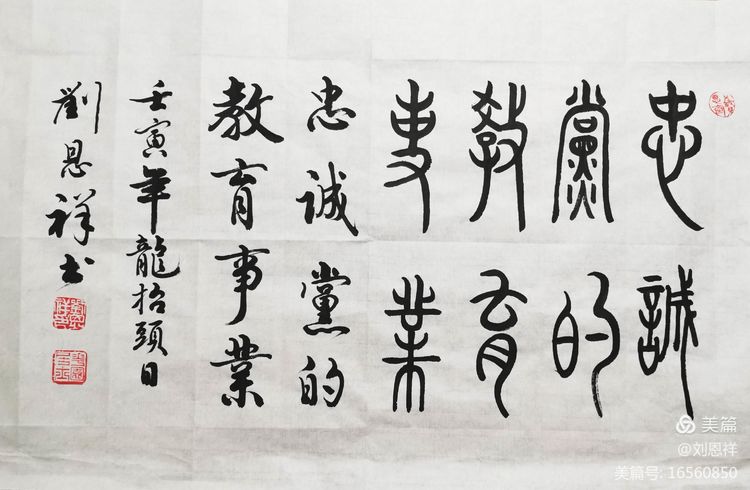 忠誠
黨的
教育
事業
忠誠黨的
教育事業
壬寅年龍抬頭日
劉恩祥书
美篇
@刘恩祥
美篇号: 16560850